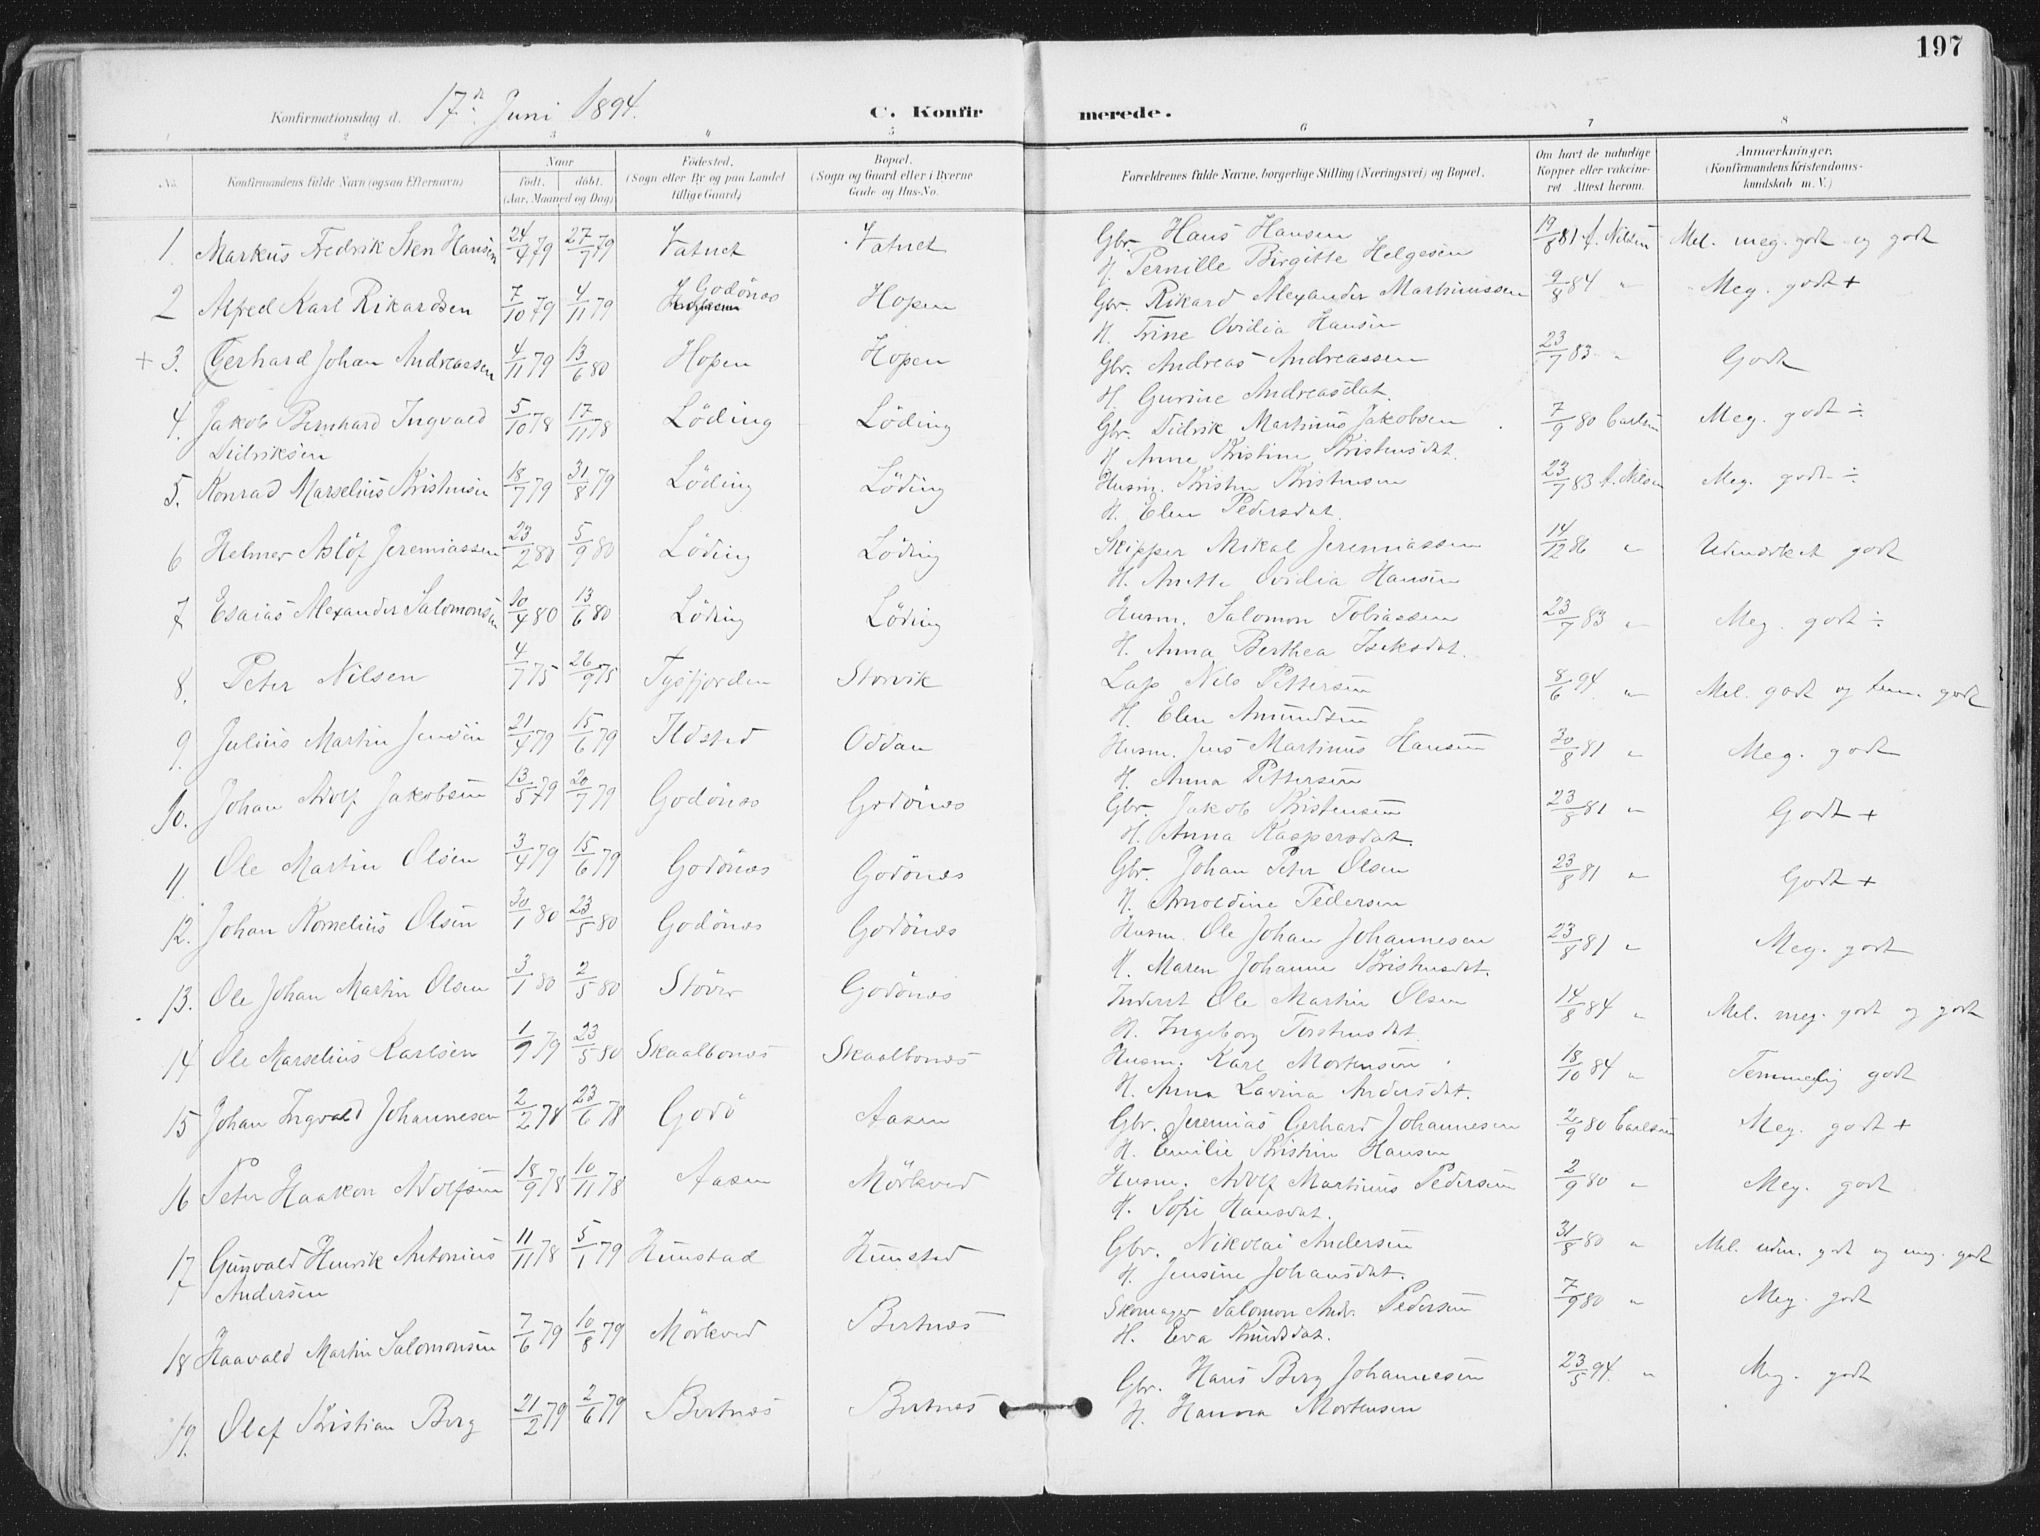 197
Konfirmationsdag d. 17de Juni 1894. C. Konfirmerede.
1 2 3 4 5 6 7 8
No. Konfirmandens fulde Navn (ogsaa Efternavn) Naar født. døbt. (Aar, Maaned og Dag) Fødested. (Sogn eller By og paa Landet tillige Gaard) Bopæl. (Sogn og Gaard eller i Byerne Gade og Hus-No. Forældrenes fulde Navne, borgerlige Stilling (Næringsvei) og Bopæl. Om havt de naturlige Kopper eller vakcineret Attest herom. Anmærkninger. (Konfirmandens Kristendomskundskab m. V.)
1. Markus Fredrik Sten Hansen 24/4 79 27/7 79 Vatnet Vatnet Gbr. Hans Hansen 19/8 81 f. Nilsen Mel. meg. godt og godt
H. Pernille Birgitte Helgesen
2 Alfred Karl Rikardsen 7/10 79 4/11 79 Godönes Hopen Gbr. Rikard Alexander Martinussen 9/8 84 " Meg. godt +
H. Trine Ovidia Hansen
+ 3. Gerhard Johan Andreassen 4/11 79 13/6 80 Hopen Hopen Gbr. Andreas Andreassen 23/7 83 " Godt
H. Gurine Andreasdat.
4. Jakob Bernhard Ingvald Didriksen 5/10 78 17/11 78 Löding Löding Gbr. Didrik Martinus Jakobsen 7/9 80 Carlsen Meg. godt ÷
H. Anne Kristine Kristensdat.
5. Konrad Marselius Kristensen 18/7 79 31/8 79 Löding Löding Husm. Kristen Kristensen 23/7 83 f. Nilsen Meg. godt ÷
H. Elen Pedersdat.
6 Helmer Aslöf Jeremiassen 23/2 80 5/9 80 Löding Löding Skipper Mikal Jeremiassen 14/12 86 " Udmerket godt
H. Anette Ovidia Hansen
7 Esaias Alexander Salomonsen 10/4 80 13/6 80 Löding Löding Husm. Salomon Tobiassen 23/7 83 " Meg. godt ÷
H. Anna Berthea Isaksdat.
8. Peter Nilsen 4/7 75 26/9 75 Tysfjorden Storvik Lap Nils Pettersen 8/6 94. " Mel. godt og tem. godt
H. Elen Amundsen
9. Julius Martin Jensen 21/4 79 15/6 79 Ildsted Oddan Husm. Jens Martinus Hansen 30/8 81 " Meg. godt
H. Anna Pettersen
10. Johan Adolf Jakobsen 13/5 79 20/7 79 Godönes Godönes Gbr. Jakob Kristensen 23/8 81 " Godt +
H. Anna Kaspersdat.
11. Ole Martin Olsen 3/4 79 15/6 79 Godönes Godönes Gbr. Johan Peter Olsen 23/8 81 " Godt +
H. Arnoldine Pedersen
12. Johan Kornelius Olsen 30/1 80 23/5 80 Godönes Godönes Husm. Ole Johan Johannesen 23/8 81 " Meg. godt
H. Maren Johanne Kristensdat.
13. Ole Johan Martin Olsen 3/1 80 2/5 80 Stöver Godönes Inderst Ole Martin Olsen 14/8 84 " Mel. meg. godt og godt
H. Ingeborg Torstensdat.
14 Ole Marselius Karlsen 1/9 79 23/5 80 Skaalbones Skaalbones Husm. Karl Mortensen 18/10 84 " Temmelig godt
H. Anna Lavina Andersdat.
15 Johan Ingvald Johannesen 2/2 78 23/6 78 Godö Aasen Gbr. Jeremias Gerhard Johannesen 2/9 80 Carlsen Meg. godt +
H. Emilie Kristine Hansen
16 Peter Haakon Adolfsen 18/9 78 10/11 78 Aasen Mörkved Husm. Adolf Martinus Pedersen 2/9 80 " Meg. godt
H. Sofie Hansdat.
17 Gunvald Henrik Antonius Andersen 11/11 78 5/1 79 Hunstad Hunstad Gbr. Nikolai Andersen 31/8 80 " Mel. udm. godt og meg. godt
H. Jensine Johansdat.
18 Haavald Martin Salomonsen 7/6 79 10/8 79 Mörkved Bertnes Skomager Salomon Andr. Pedersen 7/9 80 " Meg. godt
H. Eva Knudsdat.
19. Olaf Kristian Berg 21/2 79 2/6 79 Bertnes Bertnes Gbr. Hans Berg Johannesen 23/5 94. " Meg. godt
H. Hanna Mortensen